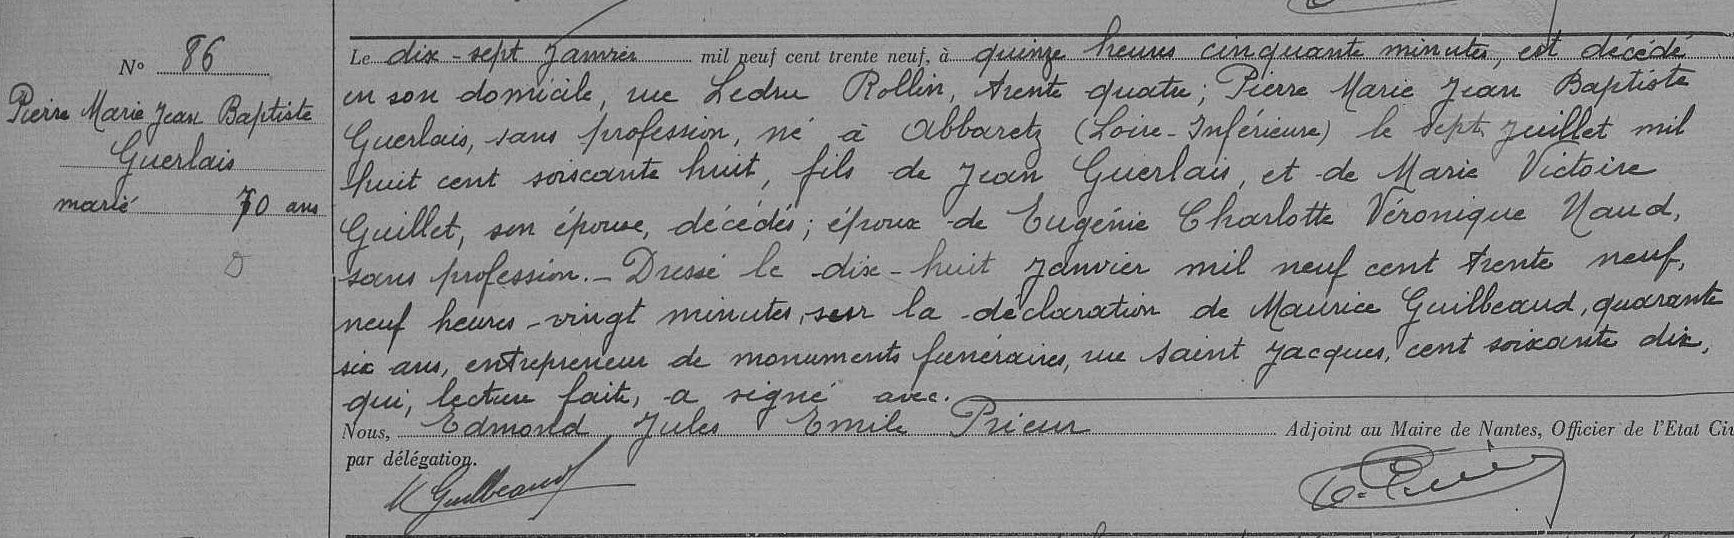 N° 86
Pierre Marie Jean Baptiste
Guerlais
marié 70 ans
Le dix-sept Janvier mil neuf cent trente neuf, à quinze heures cinquante minutes, est décédé
en son domicile, rue Ledru Rollin, trente quatre; Pierre Marie Jean Baptiste
Guerlais, sans profession, né à Abbaretz (Loire-Inférieure) le sept Juillet mil
huit cent soixante huit, fils de Jean Guerlais, et de Marie Victoire
Guillet, son épouse, décédés; époux de Eugénie Charlotte Véronique Naud,
sans profession. _ Dressé le dix-huit Janvier mil neuf cent trente neuf,
neuf heures vingt minutes, sur la déclaration de Maurice Guilbeaud, quarante
six ans, entrepreneur de monuments funéraires, rue Saint Jacques, cent soixante dix,
qui, lecture faite, a signé avec.
Nous, Edmond Jules Emile Prieur Adjoint au Maire de Nantes, Officier de l'Etat Civ
par délégation.
M Guilbeaud E. Prieur